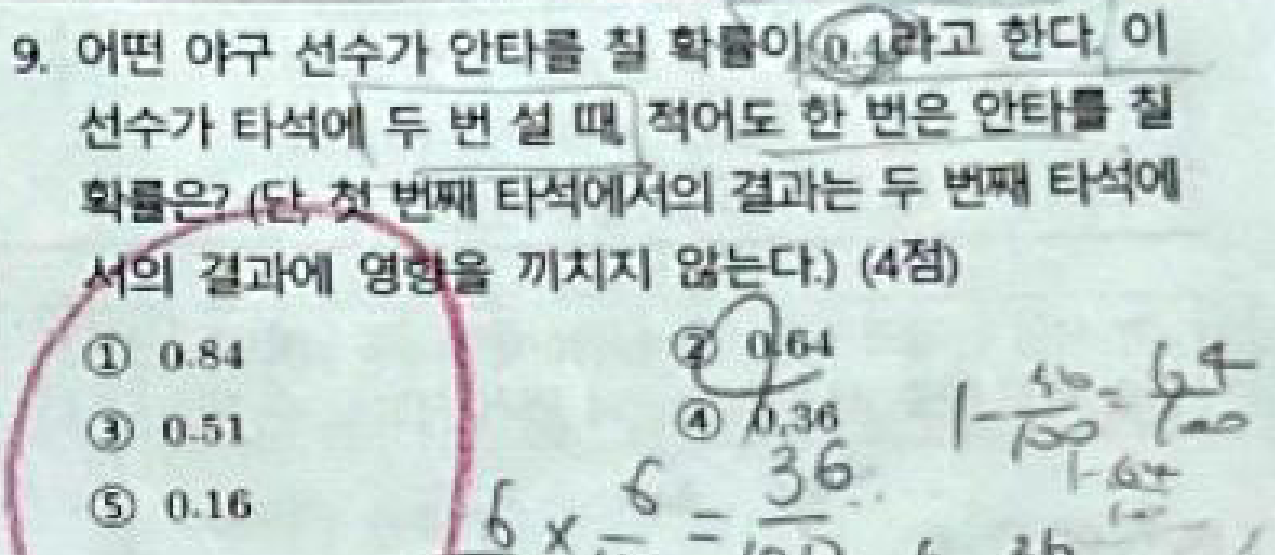 9. 어떤 야구 선수가 안타를 칠 확률이 0.4라고 한다. 이
선수가 타석에 두 번 설 때, 적어도 한 번은 안타를 칠
확률은? (단, 첫 번째 타석에서의 결과는 두 번째 타석에
서의 결과에 영향을 끼치지 않는다.) (4점)
① 0.84 ② 0.64
③ 0.51 ④ 0.36
⑤ 0.16
1 - 36/100 = 64/100
6 × 6 = 36